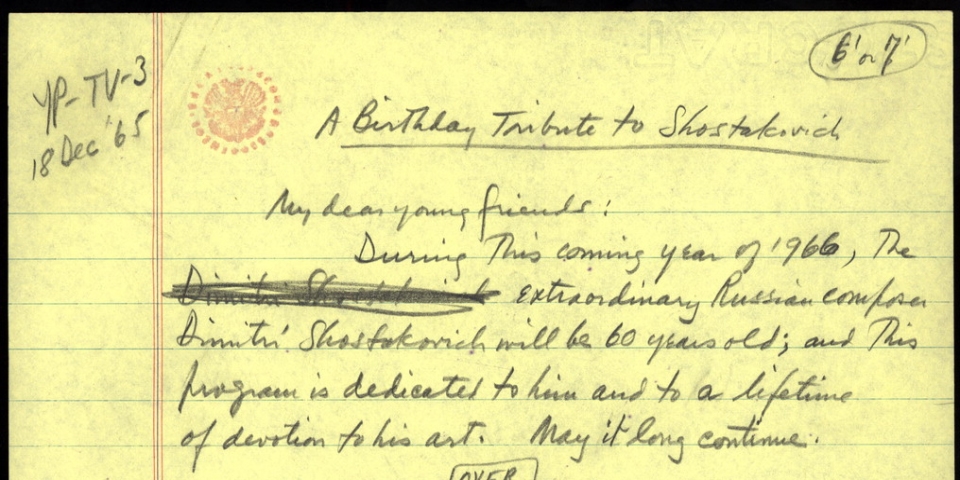 6' or 7'
YP-TV-3
18 Dec '65
A Birthday Tribute to Shostakovich
My dear young friends:
During This coming year of 1966, The
Dimitri Shostakovich extraordinary Russian composer
Dimitri Shostakovich will be 60 years old; and This
program is dedicated to him and to a lifetime
of devotion to his art. May it long continue.
OVER